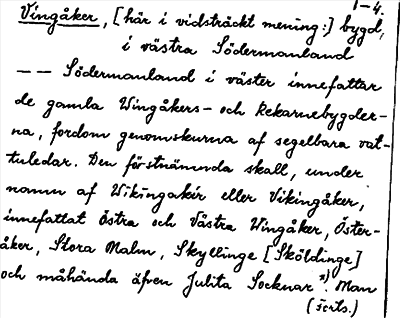 1-4.
Vingåker, [här i vidsträckt mening:] bygd,
i västra Södermanland
-- Södermanland i väster innefattar
de gamla Wingåkers- och Rekarnebygder-
na, fordom genomskurna af segelbara vat-
tuledar. Den förstnämnda skall, under
namn af Wikingakir eller Vikingåker,
innefattat Östra och Västra Wingåker, Öster-
åker, Stora Malm, Skyllinge [Sköldinge]
och måhända äfven Julita Socknar x). Man
(forts.)